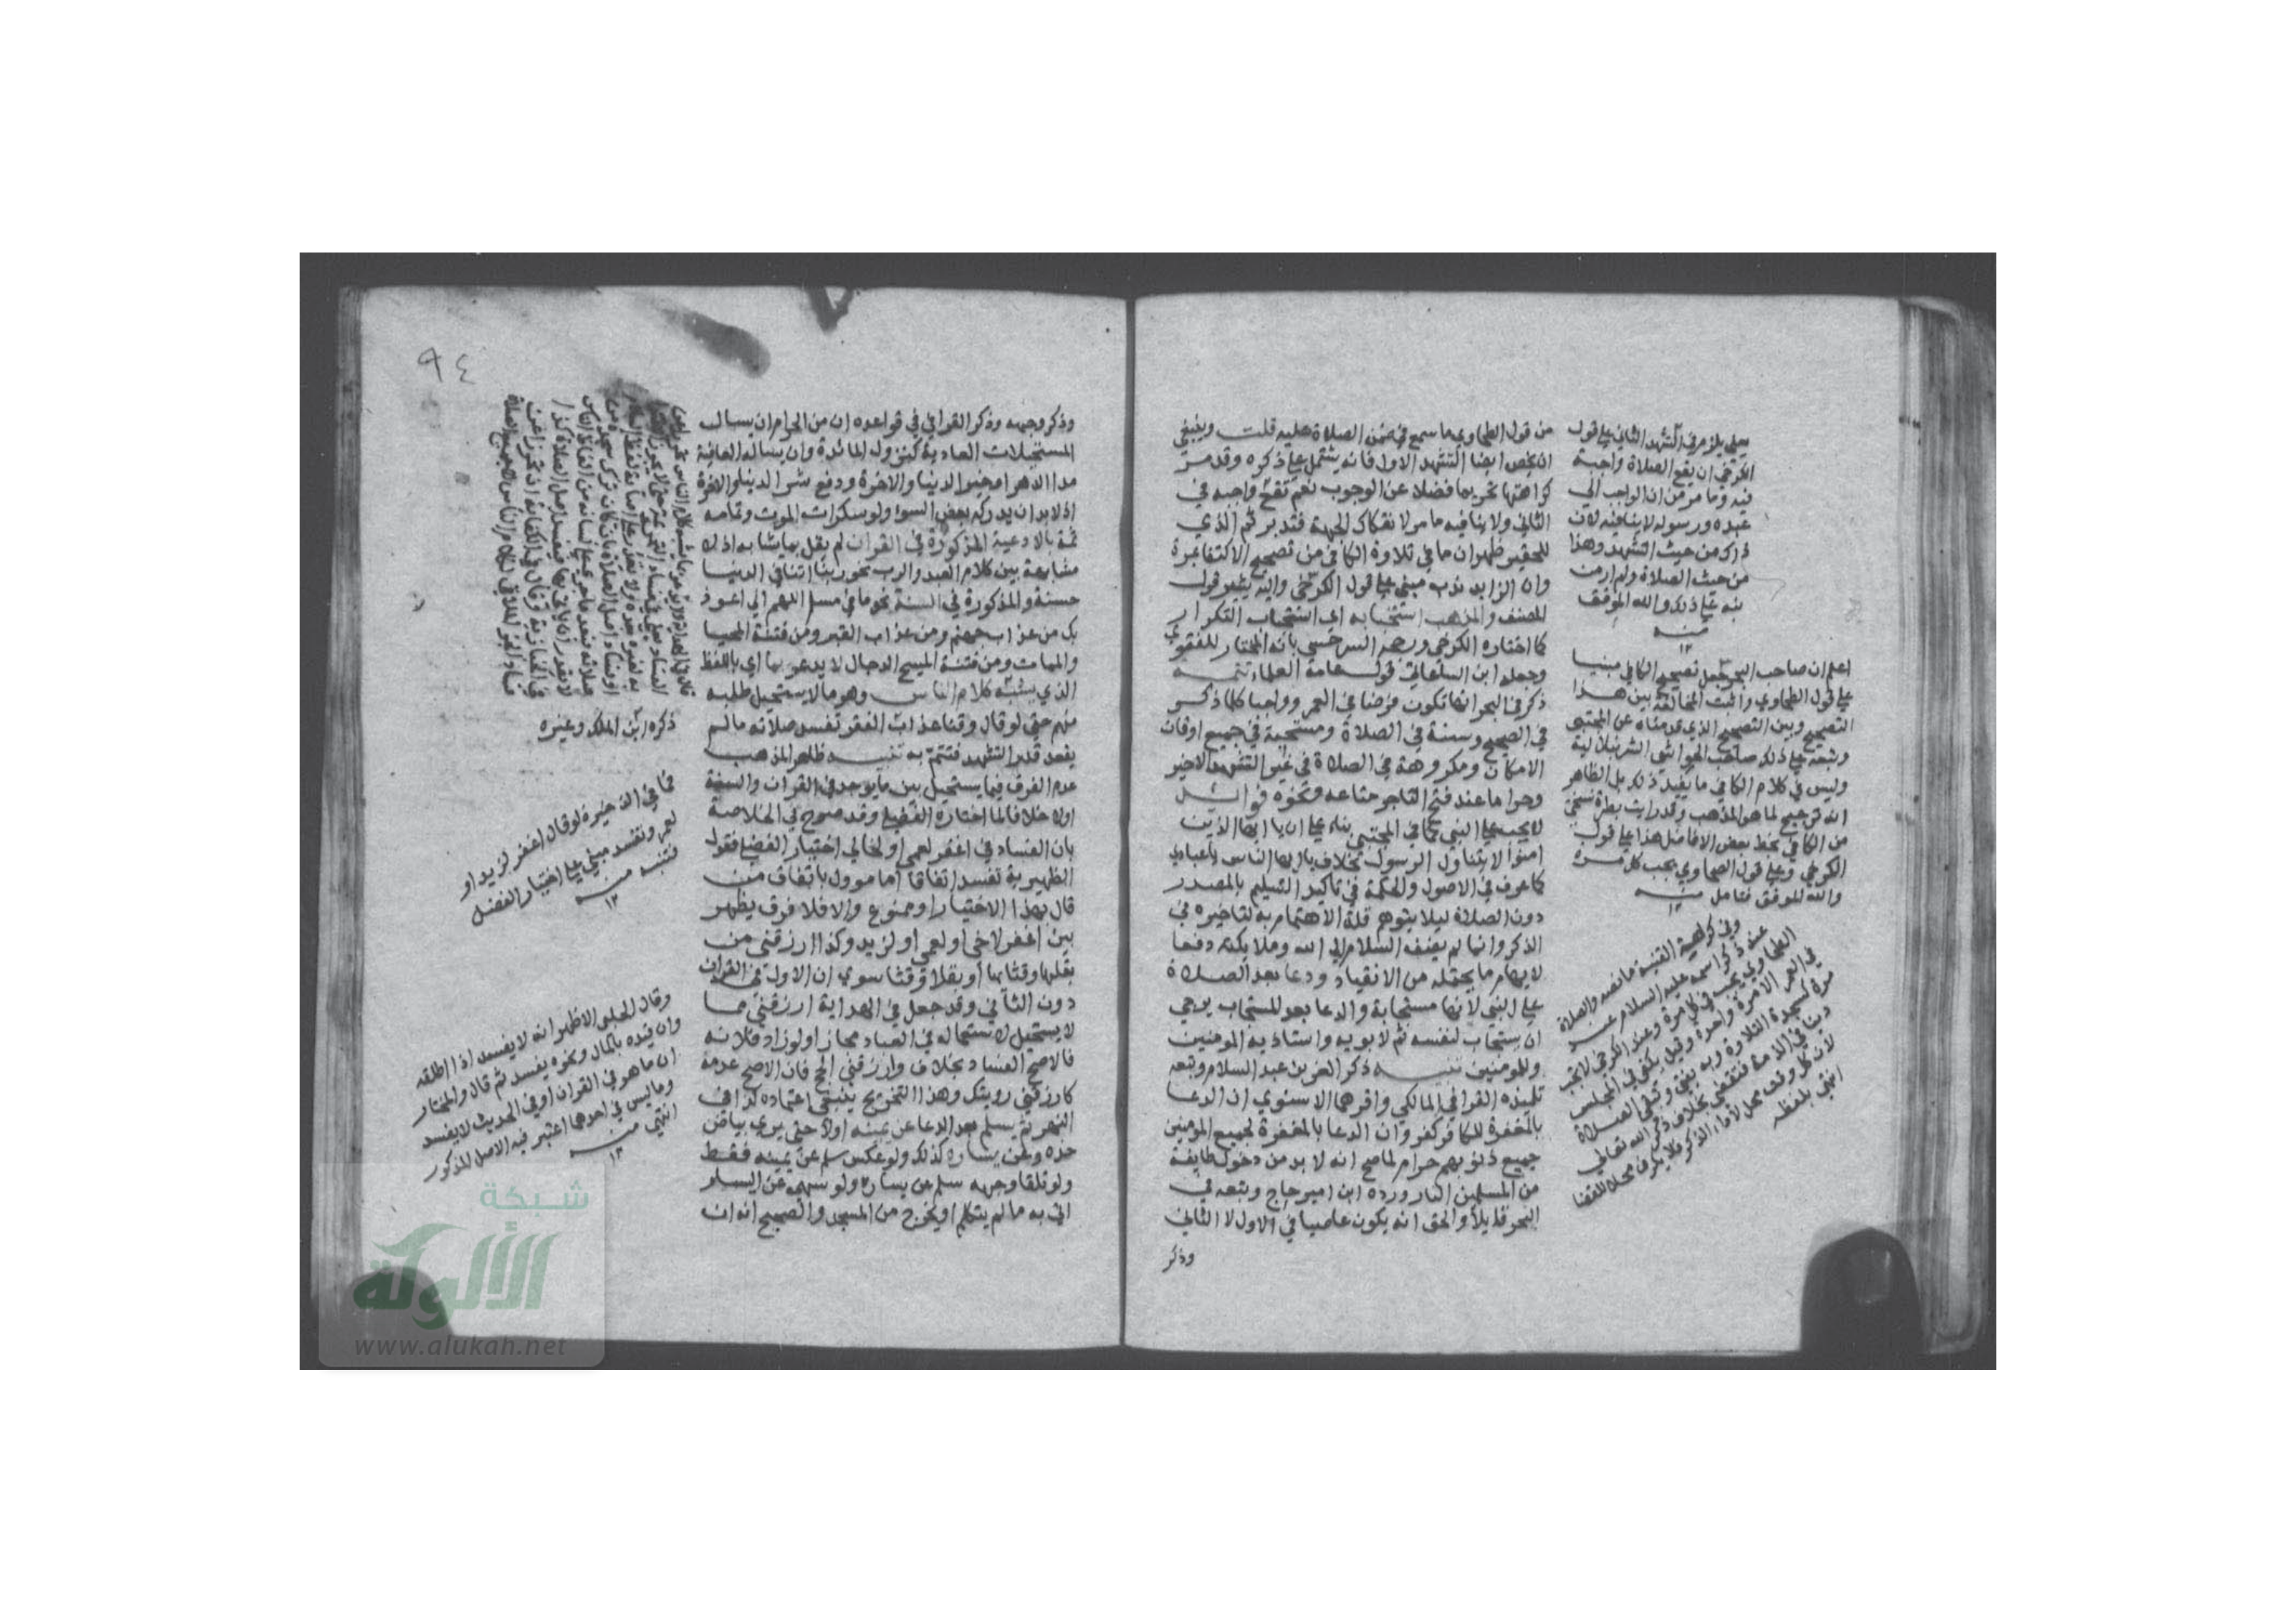 من قول الطحاوي ما سمع في ضمن الصلاة عليه قلت وينبغي
ان يخص ايضا التشهد الاول فانه يشتمل علي ذكره وقد مر
كراهتها تحريما فضلا عن الوجوب نعم تقع واجبة في
الثاني ولا ينافيه ما مر لانفكاك الجهة فتدبر ثم الذي
للحقير ظهر ان ما في تلاوة الكافي من تصحيح الاكتفا بمرة
وان الزايد ندب مبني علي قول الكرخي واليه يشير قول
المصنف والمذهب استحبابه اي استحباب التكرار
كما اختاره الكرخي ورجحه السرخسي بانه المختار للفتوي
وجعله ابن الساعاتي قول عامة العلماء تتمــه
ذكر في البحر انها تكون فرضا في العمر وواجبا كلما ذكر
في الصحيح وسنة في الصلاة ومستحبة في جميع اوقات
الامكان ومكروهة في الصلاة في غير التشهد الاخير
وحراما عند فتح التاجر متاعه ونحوه فوائــد
لا يجب علي النبي كما في المجتبي بناء علي ان يا ايها الذين
امنوا لا يتناول الرسول بخلاف يا ايها الناس يا عبادي
كما عرف في الاصول والحكمة في تاكيد التسليم بالمصدر
دون الصلاة ليلا يتوهم قلة الاهتمام به لتاخيره في
الذكر وانما لم يضف السلام الي الله وملايكته دفعا
لايهام ما يحتمله من الانقياد ودعا بعد الصلاة
علي النبي لانها مستجابة والدعا بعد المستجاب يرجي
ان يستجاب لنفسه ثم لابويه واستاذيه المومنين
وللمومنين تنبيــه ذكر العز بن عبد السلام وتبعه
تلميذه القرافي المالكي واقرهما الاسنوي ان الدعا
بالمغفرة للكافر كفر وان الدعا بالمغفرة لجميع المومنين
جميع ذنوبهم حرام لما صح انه لا بد من دخول طايفة
من المسلمين النار ورده ابن امير حاج وتبعه في
البحر قايلا والحق انه يكون عاصيا في الاول لا الثاني
وذكر
يعلي يلزم في التشهد الثاني علي قول
الكرخي ان يقع الصلاة واجبة
فيه وما مر من ان الواجب الي
عبده ورسوله لا ينافيه لان
ذاك من حيث التشهد وهذا
من حيث الصلاة ولم ار من
نبه علي ذلك والله الموفق
منــه
١٢
اعلم ان صاحب البحر جعل تصحيح الكافي مبنيا
علي قول الطحاوي واثبت المخالفة بين هذا
التصحيح وبين التصحيح الذي قدمناه عن المجتبي
وتبعه علي ذلك صاحب الحواشي الشرنبلالية
وليس في كلام الكافي ما يفيد ذلك بل الظاهر
انه ترجيح لما هو المذهب وقد رايت بطرة نسختي
من الكافي بخط بعض الافاضل هذا علي قول
الكرخي وعلي قول الطحاوي يجب كل مرة
والله الموفق فتامل منــه
١٢
وفي كراهية القنية ما نصه والصلاة
عند ذكر اسمه عليه السلام عند
الطحاوي يجب في كل مرة وعند الكرخي لا تجب
في العمر الا مرة واحدة وقيل يكفي في المجلس
مرة كسجدة التلاوة وبه يفتي وتبقي الصلاة
دينا في الذمة فتقضي بخلاف ذكر الله تعالي
لان كل وقت محل لاداء الذكر فلا يكون محلا للقضا
انتهي بلفظه
٩٤
وذكر وجهه وذكر القرافي في قواعده ان من الحرام ان يسال
المستحيلات العادية كنزول المائدة وان يساله العافية
مدا الدهر او خير الدنيا والاخرة ودفع شر الدنيا والاخرة
اذ لا بد ان يدركه بعض السوء ولو سكرات الموت وتمامه
ثمة بالادعية المذكورة في القران لم يقل بما يشابه اذ لا
مشابهة بين كلام العبد والرب نحو ربنا اتنا في الدنيا
حسنة والمذكورة في السنة نحو ما في مسلم اللهم اني اعوذ
بك من عذاب جهنم ومن عذاب القبر ومن فتنة المحيا
والممات ومن فتنة المسيح الدجال لا يدعو بما اي باللفظ
الذي يشبه كلام الناس وهو ما لا يستحيل طلبه
منهم حتي لو قال وقنا عذاب الفقر تفسد صلاته ما لم
يقعد قدر التشهد فتتم به تنبيــه ظاهر المذهب
عدم الفرق فيما يستحيل بين ما يوجد في القران والسنة
اولا خلافا لما اختاره الفضلي وقد صرح في الخلاصة
بان الفساد في اغفر لعمي او لخالي اختيار الفضلي فقول
الظهيرية تفسد اتفاقا اما موول باتفاق من
قال بهذا الاختيار او ممنوع والا فلا فرق يظهر
بين اغفر لاخي او لعمي او لزيد وكذا ارزقني من
بقلها وقثائها او بقلا وقثا سوي ان الاول في القران
دون الثاني وقد جعل في الهداية ارزقني مما
لا يستحيل لاستعماله في العباد مجازا ولو زاد فلانة
فالاصح الفساد بخلاف وارزقني الحج فان الاصح عدمه
كارزقني رويتك وهذا التخريج ينبغي اعتماده كذا في
النهر ثم يسلم بعد الدعا عن يمينه اولا حتي يري بياض
خده وعن يساره كذلك ولو عكس سلم عن يمينه فقط
ولو تلقا وجهه سلم عن يساره ولو سهي عن اليسار
اتي به ما لم يتكلم او يخرج من المسجد والصحيح انه ان
ذكره ابن الملك وغيره
فما في الذخيرة لو قال اغفر لزيد او
لعمرو تفسد مبني علي اختيار الفضلي
فتنبه منــه
١٢
وقال الحلبي الاظهر انه لا يفسد اذا اطلقه
وان قيده بالمال ونحوه يفسد ثم قال والمختار
ان ما هو في القران او في الحديث لا يفسد
وما ليس في احدهما اعتبر فيه الاصل المذكور
انتهي منــه
١٢
شبكة
الألوكة
www.alukah.net